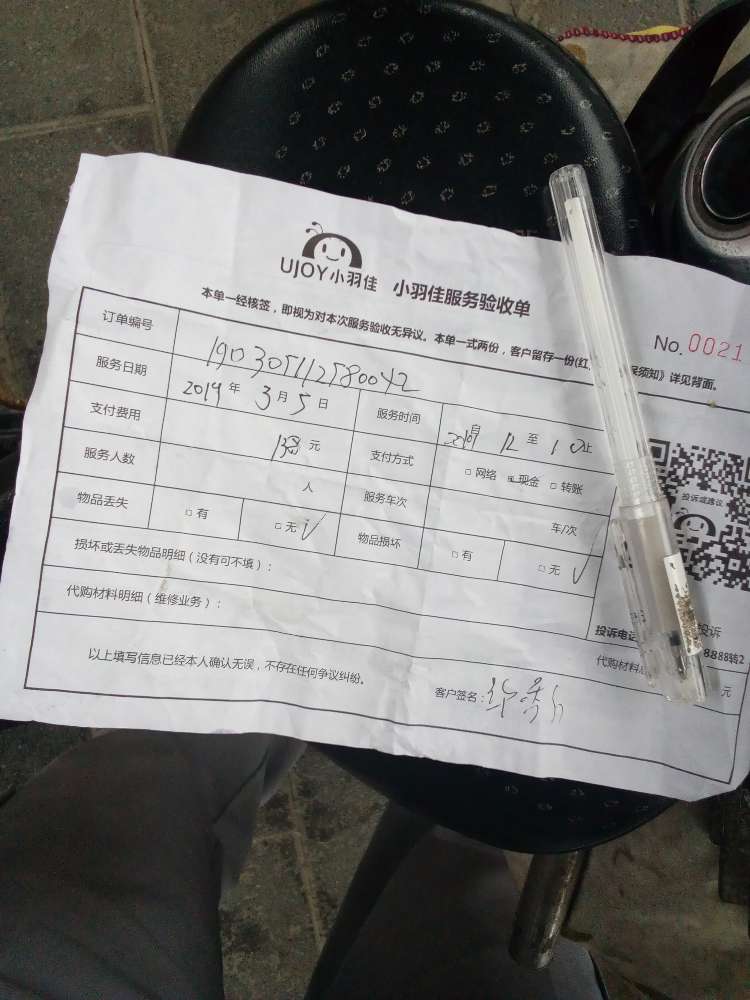 UJOY小羽佳 小羽佳服务验收单
本单一经核签，即视为对本次服务验收无异议。本单一式两份，客户留存一份(红 保须知》详见背面。
No. 0021
订单编号 190305112580042
服务日期 2019年3月5日 服务时间 自 12 至 1 止
支付费用 元 支付方式 □网络 现金 □转账
服务人数 人 服务车次 车/次
物品丢失 □有 □无√ 物品损坏 □有 □无√
投诉或建议
损坏或丢失物品明细（没有可不填）：
代购材料明细（维修业务）：
投诉电 投诉
8888转2
代购材料 元
以上填写信息已经本人确认无误，不存在任何争议纠纷。
客户签名：